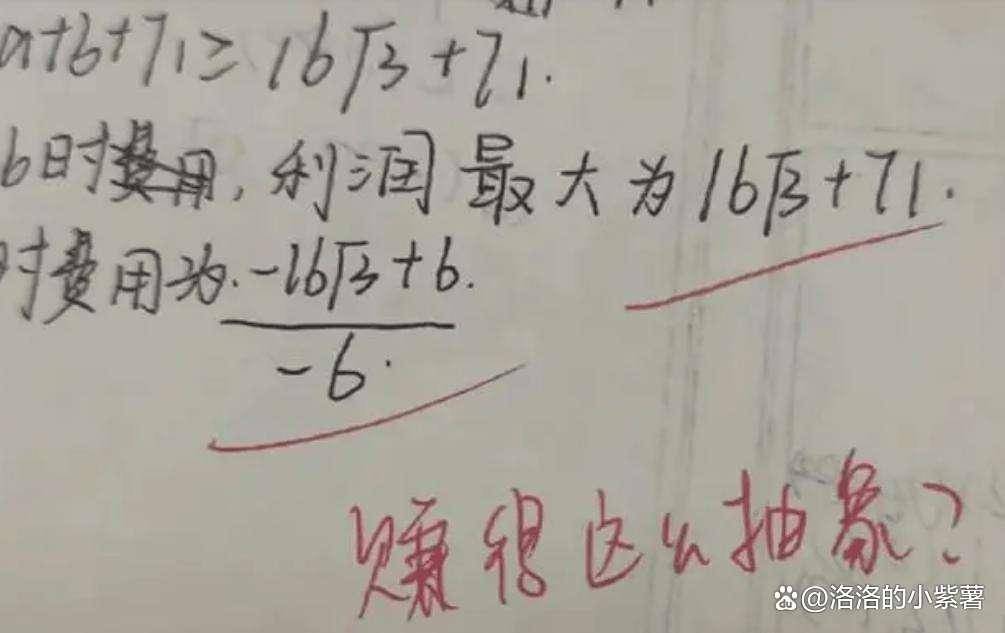 a+b+71≥16√3+71.
6时费用,利润最大为16√3+71.
时费用为.-16√3+6.
-6.
赚得这么抽象?
@洛洛的小紫薯